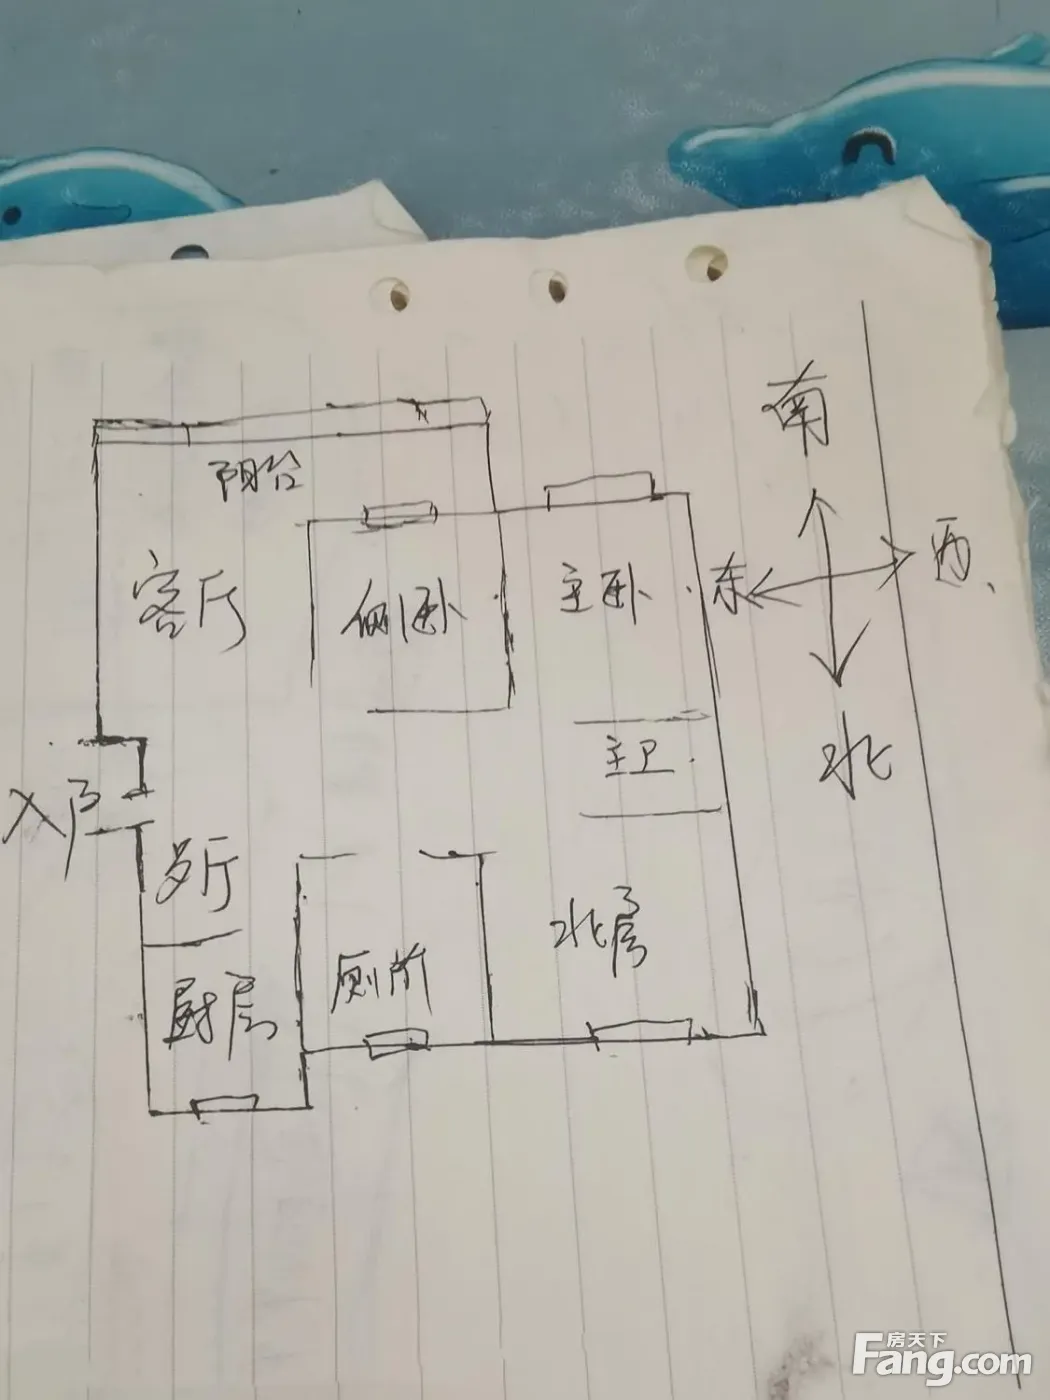 南
阳台
西
东
客厅
侧卧
主卧
主卫
北
入户
歺厅
北房
厕所
厨房
房天下
Fang.com